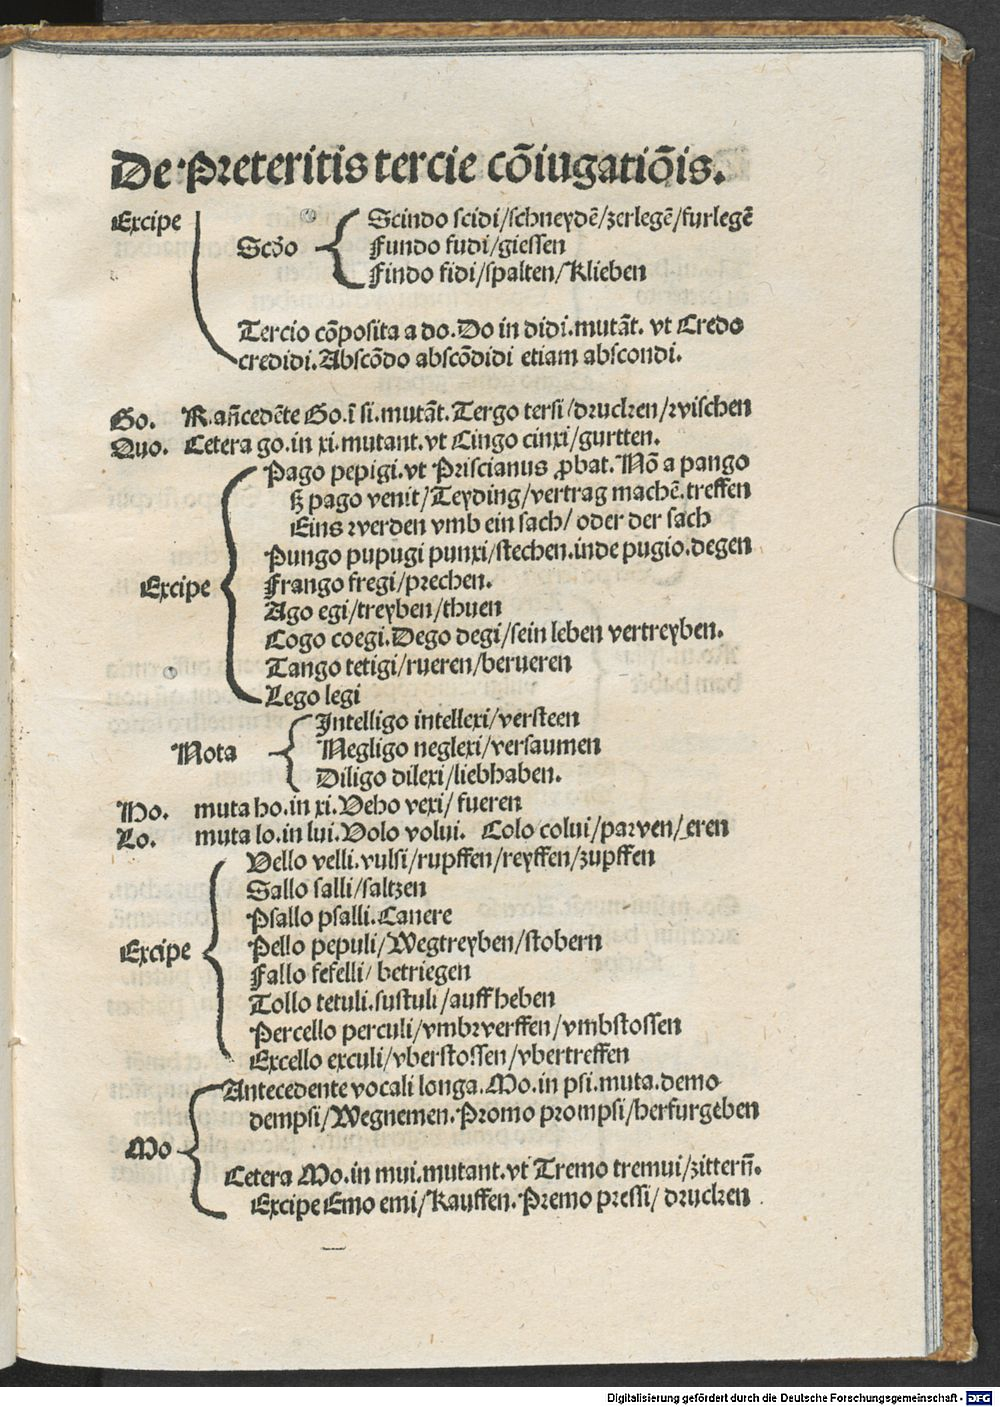 De Preteritis tercie cōiugatiōis.
Excipe
Scindo scidi/schneydē/zerlegē/furlegē
Scd́o
Fundo fudi/giessen
Findo fidi/spalten/Klieben
Tercio cōposita a do. Do in didi.mutāt. vt Credo
credidi. Abscōdo abscōdidi etiam abscondi.
Go. R.an̄cedēte Go.ī si.mutāt. Tergo tersi/drucken/wischen
Quo. Cetera go.in xi.mutant.vt Cingo cinxi/gurtten.
Pago pepigi.vt Priscianus ꝓbat. Nō a pango
pago venit/Teyding/vertrag machē.treffen
Eins werden vmb ein sach/ oder der sach
Pungo pupugi punxi/stechen.inde pugio.degen
Excipe Frango fregi/prechen.
Ago egi/treyben/thuen
Cogo coegi. Dego degi/sein leben vertreyben.
Tango tetigi/rueren/berueren
Lego legi
Intelligo intellexi/versteen
Nota Negligo neglexi/versaumen
Diligo dilexi/liebhaben.
Ho. muta ho.in xi. Veho vexi/ fueren
Lo. muta lo.in lui. Volo volui. Colo colui/parven/eren
Vello velli.vulsi/rupffen/reyffen/zupffen
Sallo salli/saltzen
Psallo psalli. Canere
Excipe Pello pepuli/Wegtreyben/stobern
Fallo fefelli/ betriegen
Tollo tetuli.sustuli/auffheben
Percello perculi/vmbwerffen/vmbstossen
Excello exculi/vberstossen/vbertreffen
Antecedente vocali longa. Mo.in psi.muta.demo
dempsi/Wegnemen. Promo prompsi/herfurgeben
Mo
Cetera Mo.in mui.mutant.vt Tremo tremui/zittern̄.
Excipe Emo emi/Kauffen. Premo pressi/ drucken
Digitalisierung gefördert durch die Deutsche Forschungsgemeinschaft - DFG